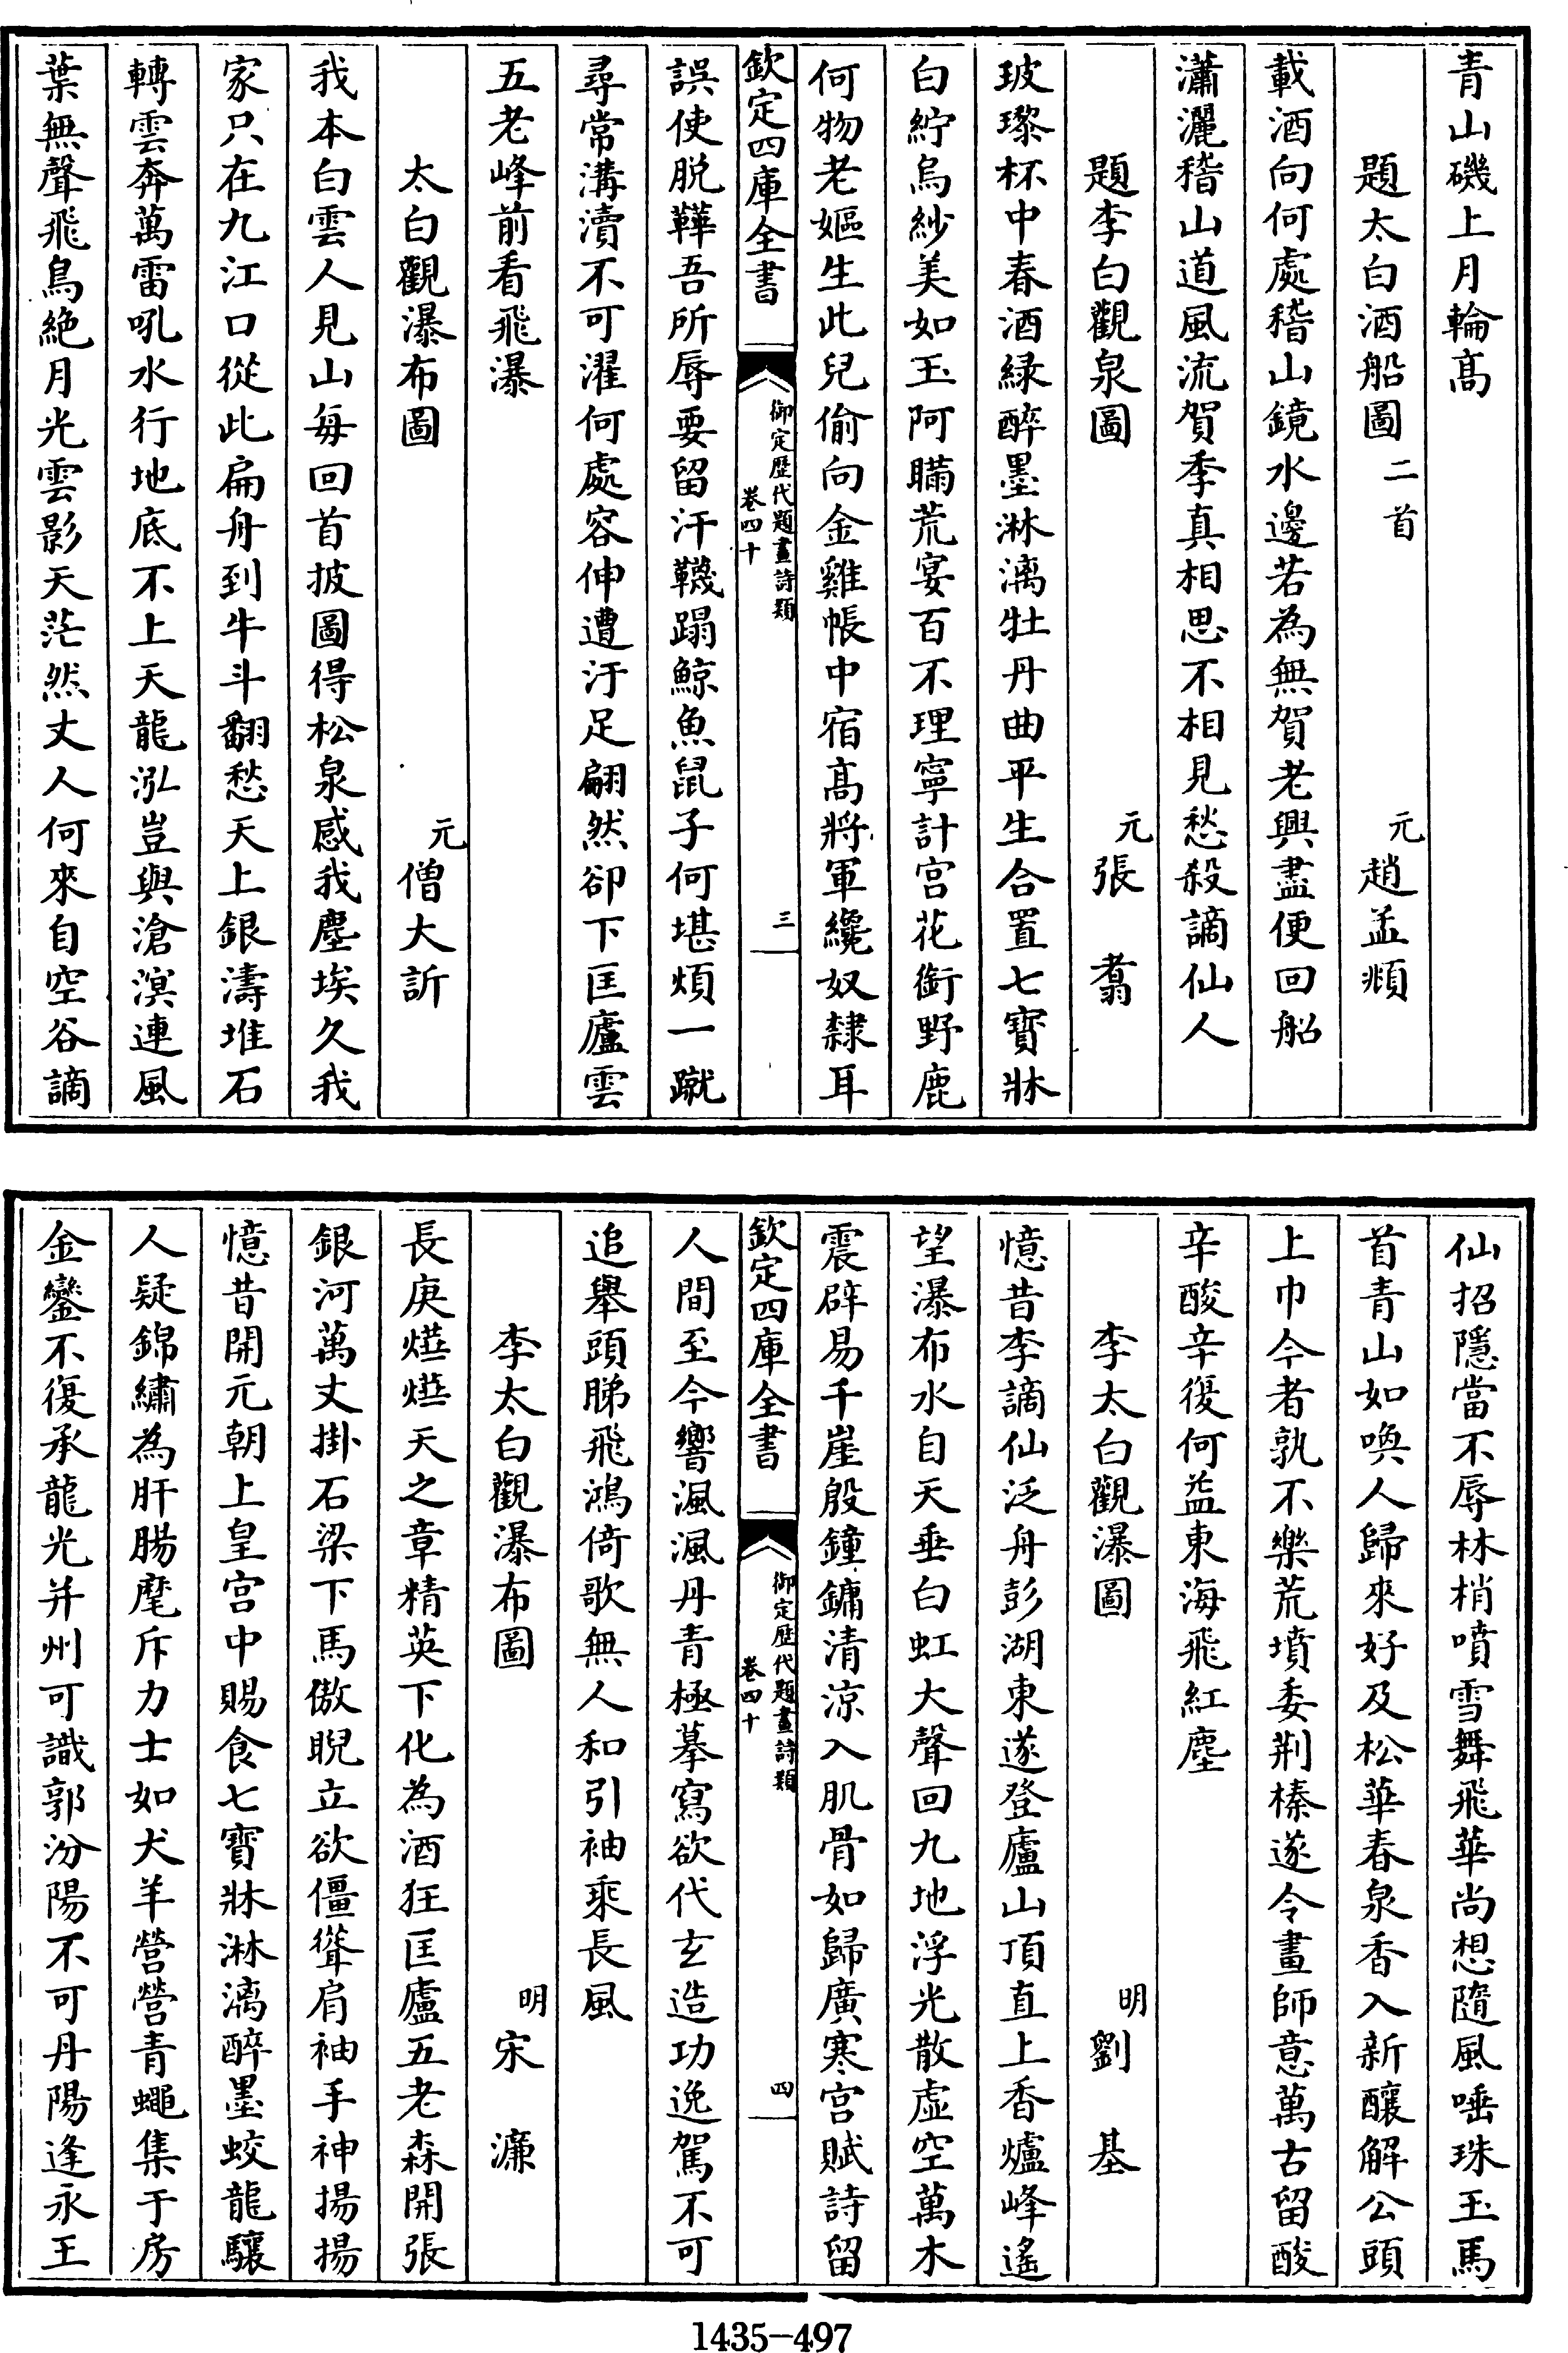 青山磯上月輪髙
題太白酒船圖二首　元趙孟頫
載酒向何處稽山鏡水邊若為無賀老興盡便回船
瀟灑稽山道風流賀季真相思不相見愁殺謫仙人
題李白觀泉圖　元張翥
玻瓈杯中春酒緑醉墨淋漓牡丹曲平生合置七寳牀
白紵烏紗美如玉阿瞞荒宴百不理寧計宫花銜野鹿
何物老嫗生此兒偷向金雞帳中宿髙將軍纔奴隸耳
欽定四庫全書　御定歴代題畫詩類卷四十　三
誤使脱鞾吾所辱要留汗韈蹋鯨魚鼠子何堪煩一蹴
尋常溝瀆不可濯何處容伸遭汙足翩然卻下匡廬雲
五老峰前看飛瀑
太白觀瀑布圖　元僧大訢
我本白雲人見山每回首披圖得松泉感我塵埃久我
家只在九江口從此扁舟到牛斗翻愁天上銀濤堆石
轉雲奔萬雷吼水行地底不上天龍泓豈與滄溟連風
葉無聲飛鳥絶月光雲影天茫然丈人何來自空谷謫
仙招隱當不辱林梢噴雪舞飛華尚想隨風唾珠玉馬
首青山如喚人歸來好及松華春泉香入新釀解公頭
上巾今者孰不樂荒墳委荆榛遂令畫師意萬古留酸
辛酸辛復何益東海飛紅塵
李太白觀瀑圖　明劉基
憶昔李謫仙泛舟彭湖東遂登廬山頂直上香爐峰遙
望瀑布水自天垂白虹大聲回九地浮光散虛空萬木
震辟易千崖殷鐘鏞清涼入肌骨如歸廣寒宫賦詩留
欽定四庫全書　御定歴代題畫詩類卷四十　四
人間至今響渢渢丹青極摹寫欲代玄造功逸駕不可
追舉頭睇飛鴻倚歌無人和引袖乘長風
李太白觀瀑布圖　明宋濂
長庚爗爗天之章精英下化為酒狂匡廬五老森開張
銀河萬丈掛石梁下馬傲睨立欲僵聳肩袖手神揚揚
憶昔開元朝上皇宫中賜食七寳牀淋漓醉墨蛟龍驤
人疑錦繡為肝腸麾斥力士如犬羊營營青蠅集于房
金鑾不復承龍光并州可識郭汾陽不可丹陽逢永王
1435-497